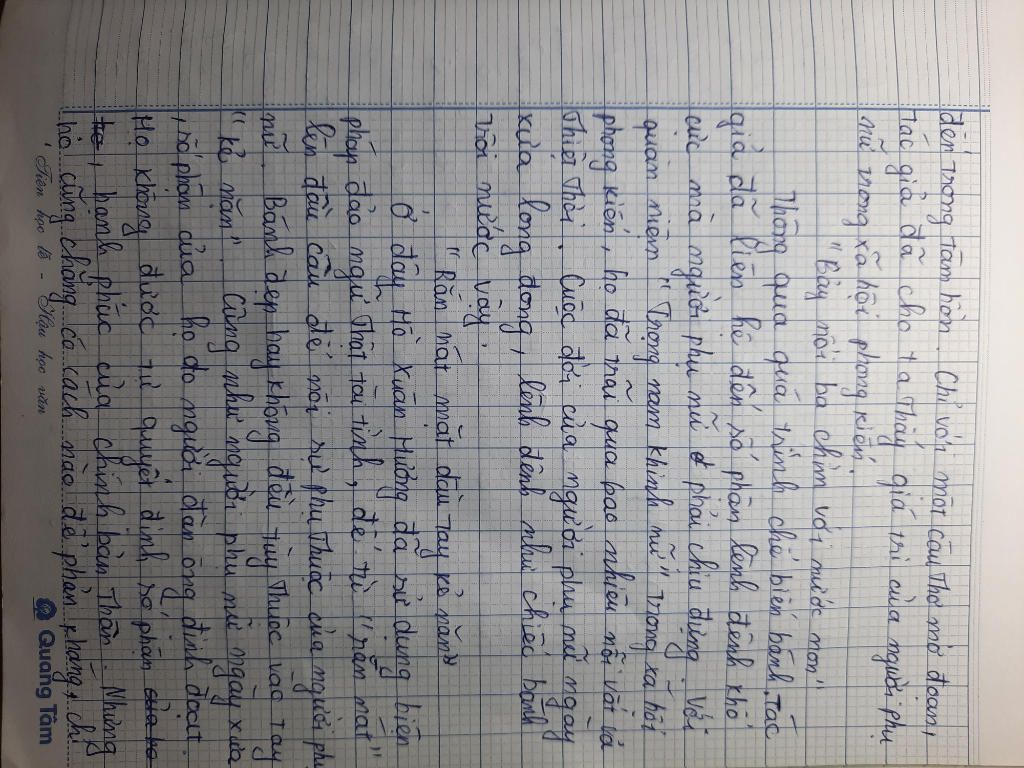 đến trong tâm hồn. Chỉ với một câu thơ mở đoạn,
tác giả đã cho ta thấy giá trị của người phụ
nữ trong xã hội phong kiến.
"Bảy nổi ba chìm với nước non"
Thông qua quá trình chế biến bánh, tác
giả đã liên hệ đến số phận lênh đênh khổ
cực mà người phụ nữ phải chịu đựng. Với
quan niệm "Trọng nam khinh nữ" trong xã hội
phong kiến, họ đã trải qua bao nhiêu nỗi vất vả
thiệt thòi. Cuộc đời của người phụ nữ ngày
xưa long đong, lênh đênh như chiếc bánh
trôi nước vậy.
"Rắn nát mặt dầu tay kẻ nặn"
Ở đây Hồ Xuân Hương đã sử dụng biện
pháp đảo ngữ thật tài tình, để từ "rắn nát"
lên đầu câu để nói sự phụ thuộc của người phụ
nữ. Bánh đẹp hay không đều tùy thuộc vào tay
"kẻ nặn". Cũng như người phụ nữ ngày xưa
, số phận của họ do người đàn ông định đoạt.
Họ không được tự quyết định số phận của họ
, hạnh phúc của chính bản thân. Nhưng
họ cũng chẳng có cách nào để phản kháng, chỉ
Tiên học lễ - Hậu học văn
Quang Tâm